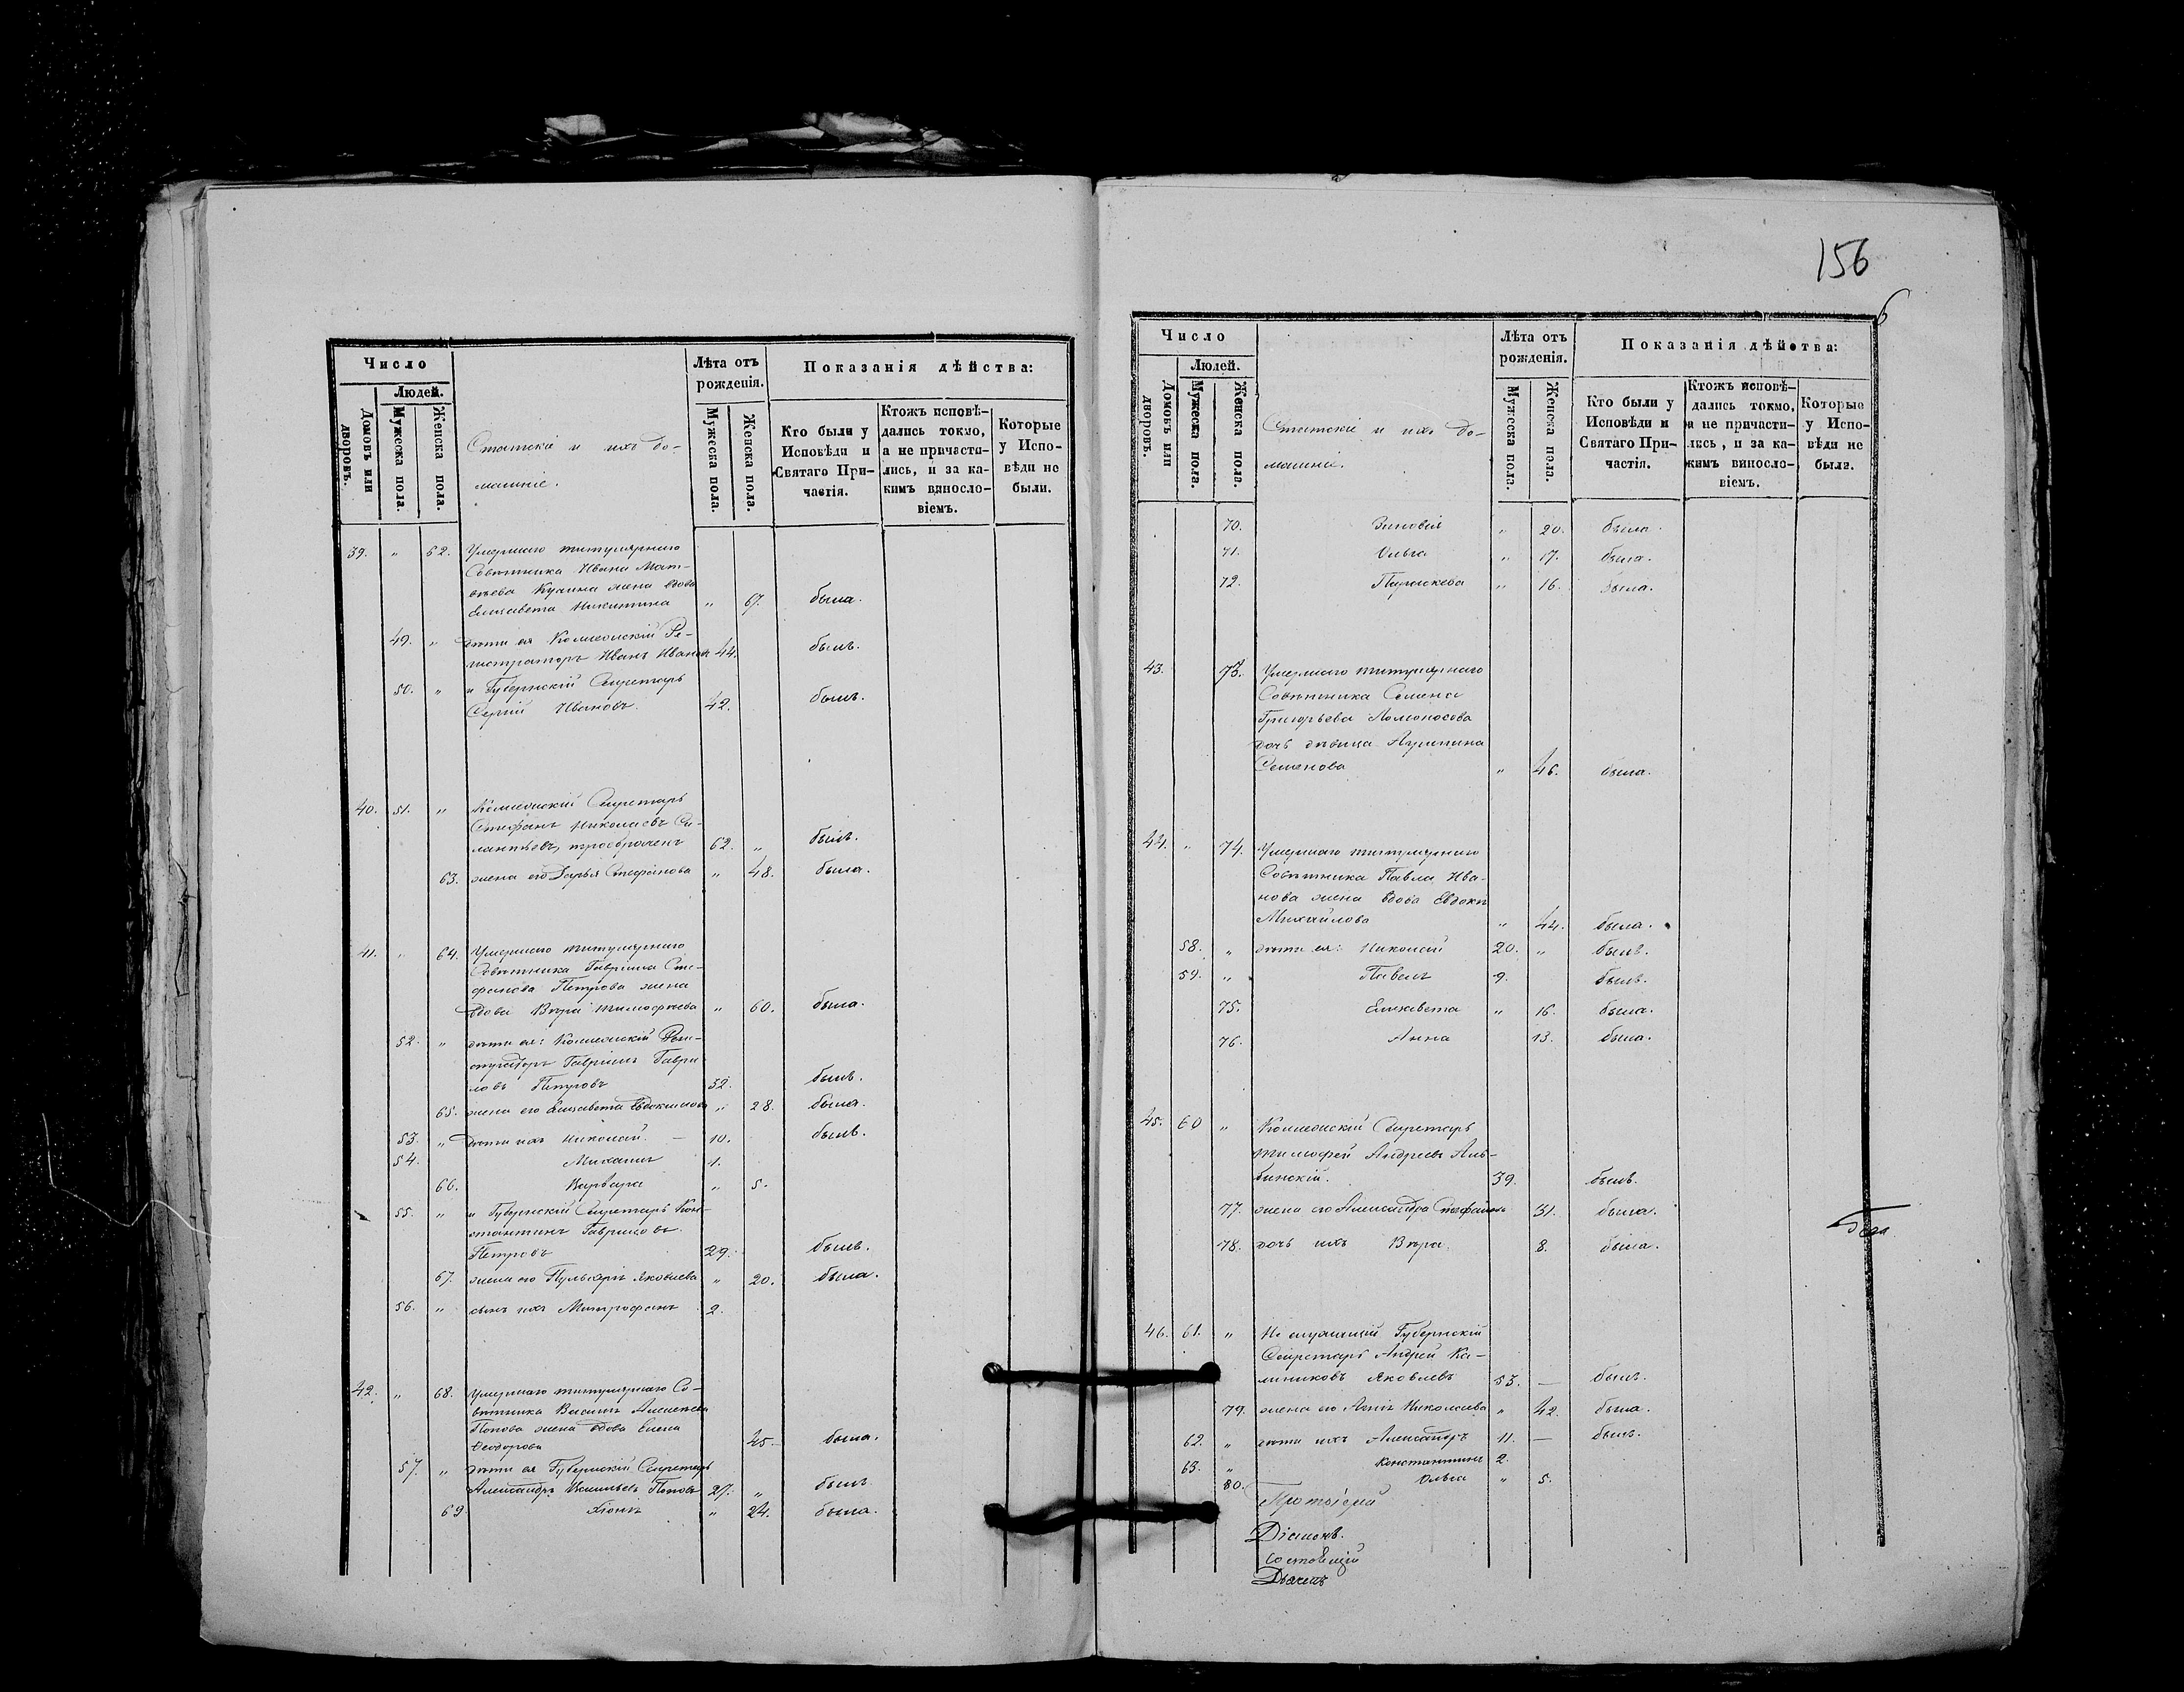 Число
Людей.
Домовъ или дворовъ.
Мужеска пола.
Женска пола.
Статскіе и ихъ до-
машніе.
Лѣта отъ
рожденія.
Мужеска пола.
Женска пола.
Показанія дѣйства:
Кто были у
Исповѣди и
Святаго При-
частія.
Ктожъ исповѣ-
дались токмо,
а не причасти-
лись, и за ка-
кимъ винослo-
віемъ.
Которые
у Испо-
вѣди не
были.
39. " 62. Умершаго титулярнаго
Совѣтника Ивана Мат-
вѣева жена вдова
Елисавета Никитина " 67. была.
49. " дѣти ея Коллежскій Ре-
гистраторъ Иванъ Ивановъ 44. былъ.
50. " и Губернскій Секретарь
Сергій Ивановъ. 42. былъ.
40. 51. " Коллежскій Секретарь
Стефанъ Николаевъ Си-
лантьевъ, троебраченъ 62. " былъ.
63. жена его Дарья Стефанова " 48. была.
41. " 64. Умершаго титулярнаго
Совѣтника Гавріила Сте-
фанова Петрова жена
вдова Вѣра Тимофѣева " 60. была.
52. " дѣти ея: Коллежскій Реги-
страторъ Гавріилъ Гаври-
ловъ Петровъ 32. былъ.
65. жена его Елисавета Евдокимова " 28. была.
53. " дѣти ихъ Николай. — 10. былъ.
54. Михаилъ 1.
66. Варвара " 5.
55. " и Губернскій Секретарь Кон-
стантинъ Гавриловъ
Петровъ 29. былъ.
67. жена его Пульхерія Яковлева " 20. была.
56. " сынъ ихъ Митрофанъ 2.
42. " 68. Умершаго титулярнаго Со-
вѣтника Василія Алексѣева
Попова жена вдова Елена
Ѳеодорова 45. была.
57. " дѣти ея Губернскій Секретарь
Александръ Васильевъ Поповъ 27. " былъ
69 24. была.
156
6
Число
Людей.
Домовъ или дворовъ.
Мужеска пола.
Женска пола.
Статскіе и ихъ до-
машніе.
Лѣта отъ
рожденія.
Мужеска пола.
Женска пола.
Показанія дѣйства:
Кто были у
Исповѣди и
Святаго При-
частія.
Ктожъ исповѣ-
дались токмо,
а не причасти-
лись, и за ка-
кимъ винослo-
віемъ.
Которые
у Испо-
вѣди не
были.
70. Зиновія " 20. была.
71. Ольга " 17. была.
72. Параскева " 16. была.
43. 73. Умершаго титулярнаго
Совѣтника Семена
Григорьева Ломоносова
дочь дѣвица Акулина
Семенова " 46. была.
44. " 74. Умершаго титулярнаго
Совѣтника Павла Ива-
нова жена вдова Евдокія
Михайлова " 44. была.
58. " дѣти ея: Николай 20. " былъ.
59. " Павелъ 9. былъ.
75. Елисавета " 16. была.
76. Анна 13. была.
45. 60 " Коллежскій Секретарь
Тимофей Андреевъ Аль-
бинскій. 39. былъ.
77. жена его Александра Стефанова 31. была.
78. дочь ихъ Вѣра. 8. была.
46. 61. " Не служащій Губернскій
Секретарь Андрей Ка-
линиковъ Яковлевъ 53. — былъ.
79. жена его Николаева " 42. была.
62. " дѣти ихъ Александръ 11. — былъ.
63. " Константинъ 2.
80. Ольга " 5.
Протоіерей
Діаконъ.
Дьячекъ